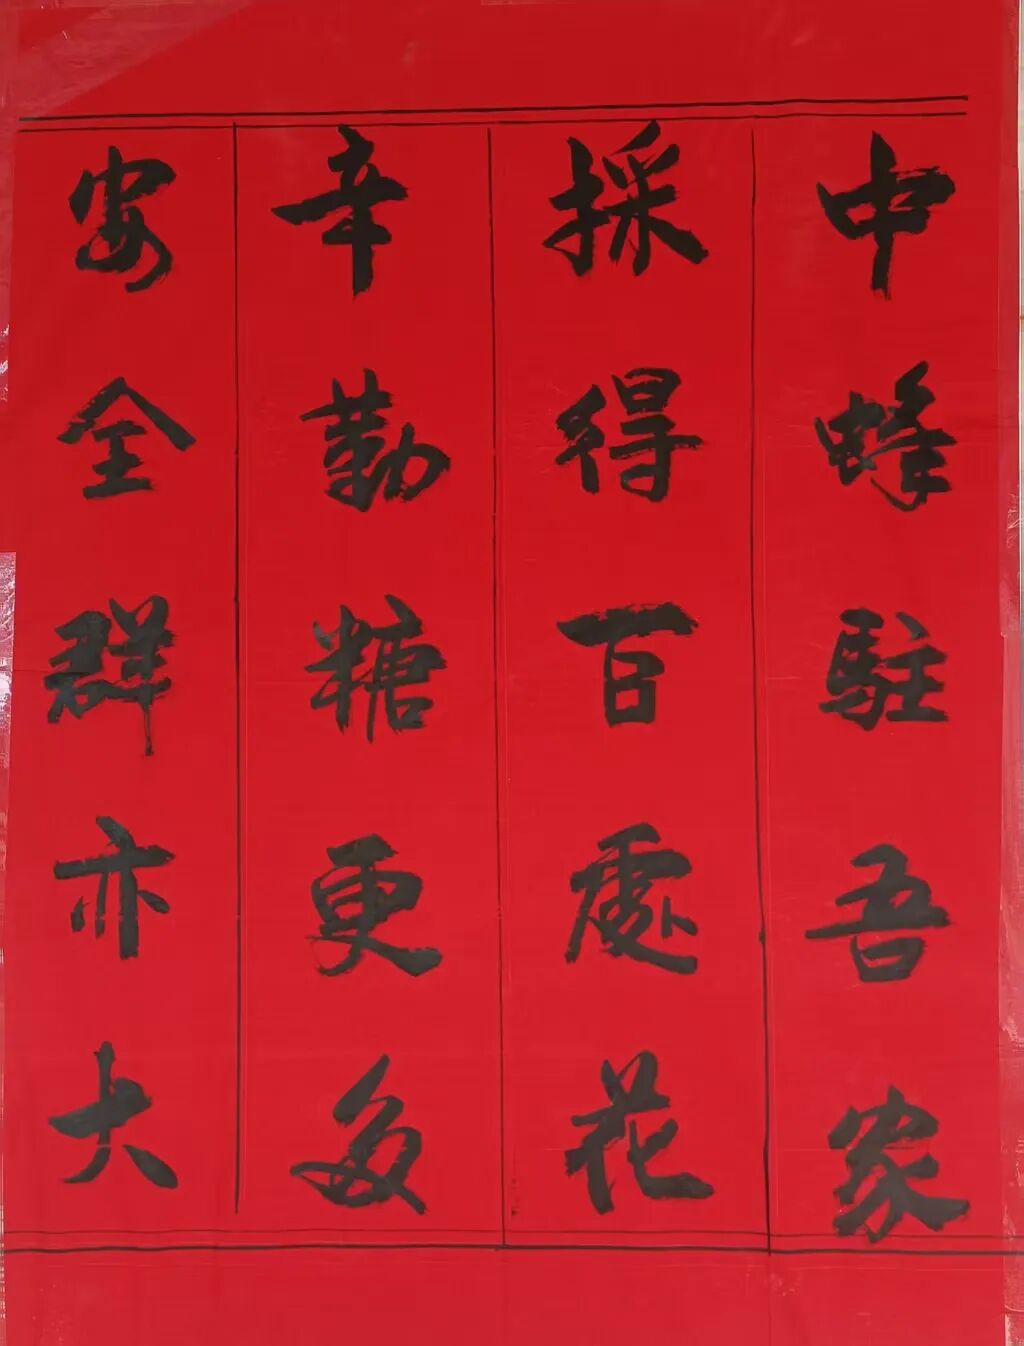 中蜂駐吾家
採得百處花
辛勤糖更多
安全群亦大